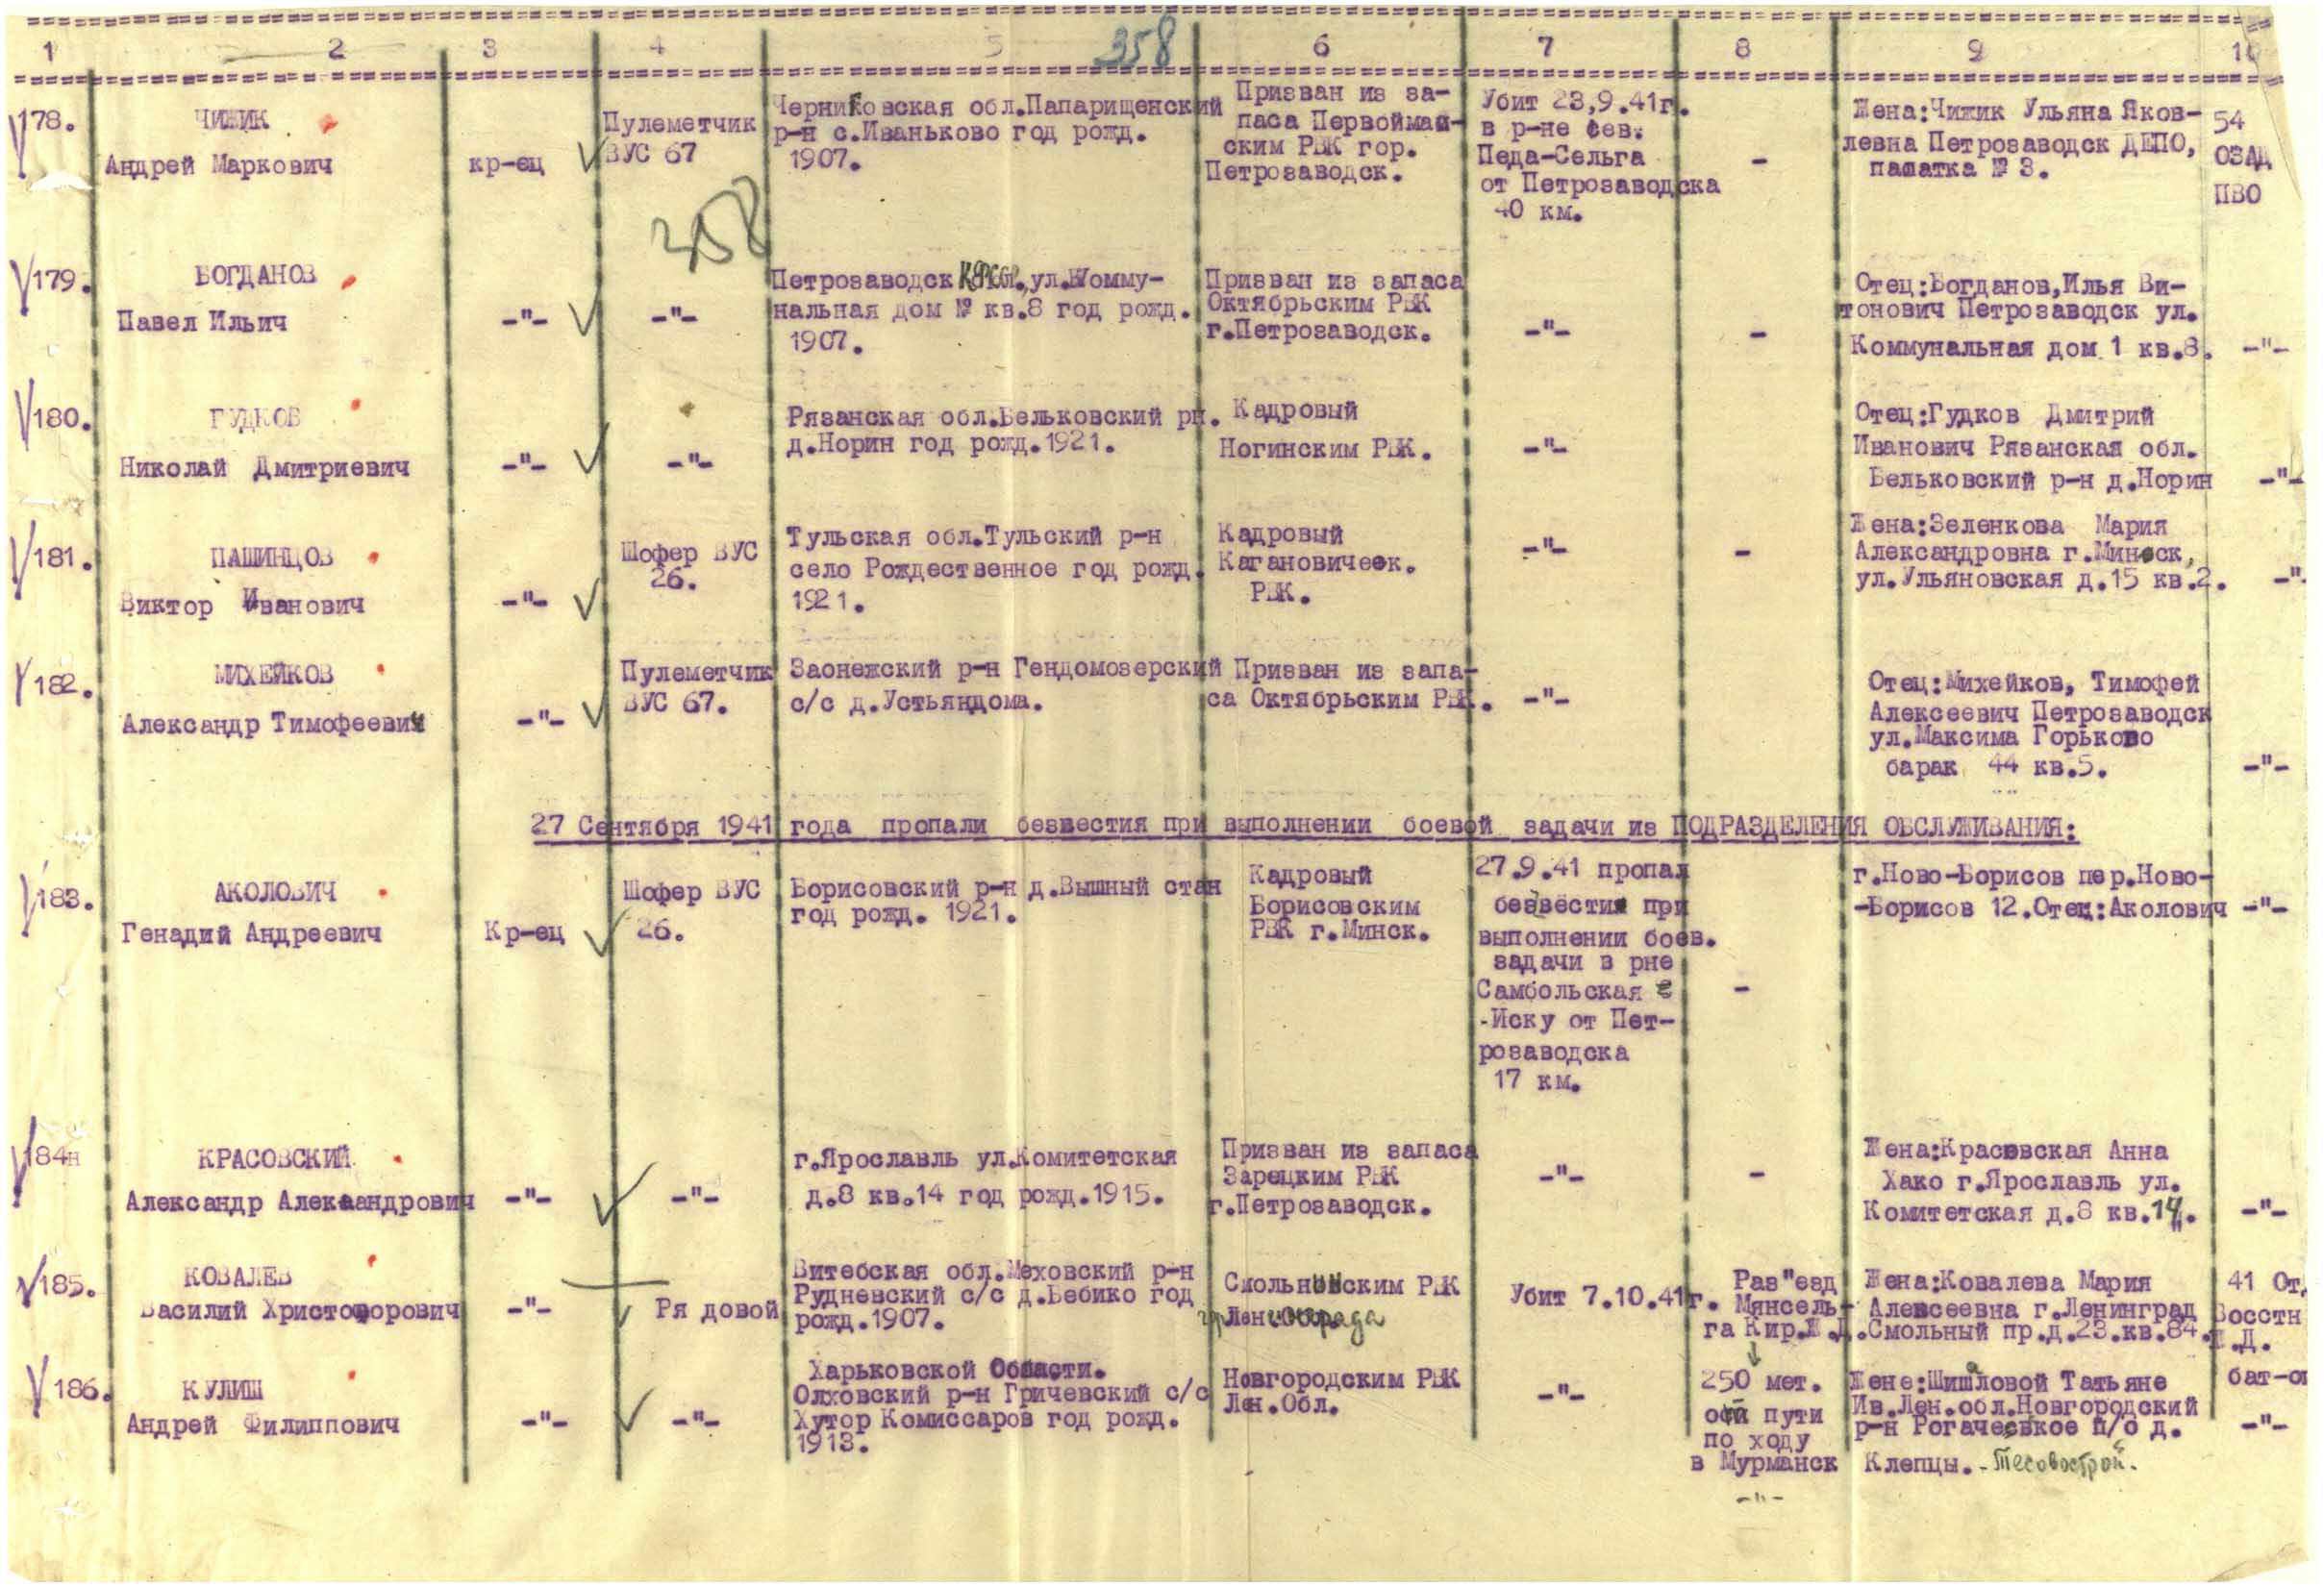 1 2 3 4 5 358 6 7 8 9 10
178.
ЧИЖИК
Андрей Маркович
кр-ец
Пулеметчик
ВУС 67
Черниковская обл.Папарищенский
р-н с.Иваньково год рожд.
1907.
Призван из за-
паса Первоймай-
ским РВК гор.
Петрозаводск.
Убит 23,9.41г.
в р-не сев.
Педа-Сельга
от Петрозаводска
40 км.
-
Жена:Чижик Ульяна Яков-
левна Петрозаводск ДЕПО,
палатка № 3.
54
ОЗАД
ПВО
358
179.
БОГДАНОВ
Павел Ильич
-"-
-"-
Петрозаводск КФССР.,ул.Комму-
нальная дом № кв.8 год рожд.
1907.
Призван из запаса
Октябрьским РВК
г.Петрозаводск.
-"-
-
Отец:Богданов,Илья Ви-
тонович Петрозаводск ул.
Коммунальная дом 1 кв.8.
-"-
180.
ГУДКОВ
Николай Дмитриевич
-"-
-"-
Рязанская обл.Бельковский рн.
д.Норин год рожд.1921.
Кадровый
Ногинским РВК.
-"-
Отец:Гудков Дмитрий
Иванович Рязанская обл.
Бельковский р-н д.Норин
-"-
181.
ПАШИНЦОВ
Виктор Иванович
-"-
Шофер ВУС
26.
Тульская обл.Тульский р-н
село Рождественное год рожд.
1921.
Кадровый
Кагановическ.
РВК.
-"-
-
Жена:Зеленкова Мария
Александровна г.Минск,
ул.Ульяновская д.15 кв.2.
-"-
182.
МИХЕЙКОВ
Александр Тимофеевич
-"-
Пулеметчик
ВУС 67.
Заонежский р-н Гендомозерский
с/с д.Устьяндома.
Призван из запа-
са Октябрьским РВК.
-"-
Отец:Михейков, Тимофей
Алексеевич Петрозаводск
ул.Максима Горьково
барак 44 кв.5.
-"-
27 Сентября 1941 года пропали безвестия при выполнении боевой задачи из ПОДРАЗДЕЛЕНИЯ ОБСЛУЖИВАНИЯ:
183.
АКОЛОВИЧ
Генадий Андреевич
Кр-ец
Шофер ВУС
26.
Борисовский р-н д.Вышный стан
год рожд. 1921.
Кадровый
Борисовским
РВК г.Минск.
27.9.41 пропал
безвестия при
выполнении боев.
задачи в рне
Самбольская
-Иску от Пет-
розаводска
17 км.
-
г.Ново-Борисов пер.Ново-
-Борисов 12.Отец:Аколович
-"-
184н
КРАСОВСКИЙ
Александр Александрович
-"-
-"-
г.Ярославль ул.Комитетская
д.8 кв.14 год рожд.1915.
Призван из запаса
Зарецким РВК
г.Петрозаводск.
-"-
-
Жена:Красовская Анна
Хако г.Ярославль ул.
Комитетская д.8 кв.14.
-"-
185.
КОВАЛЕВ
Василий Христофорович
-"-
Ря довой
Витебская обл.Меховский р-н
Рудневский с/с д.Бебико год
рожд.1907.
Смольнинским РВК
гр Ленинграда
Убит 7.10.41г.
Раз"езд
Мянсель-
га Кир.Ж.Д.
Жена:Ковалева Мария
Алексеевна г.Ленинград
Смольный пр.д.23.кв.84.
41 От.
Восстн
Ж.Д.
бат-он
186.
КУЛИШ
Андрей Филиппович
-"-
-"-
Харьковской Области.
Олховский р-н Гричевский с/с
Хутор Комиссаров год рожд.
1913.
Новгородским РВК
Лен.Обл.
-"-
250 мет.
оси пути
по ходу
в Мурманск
-"-
Жене:Шишловой Татьяне
Ив.Лен.обл.Новгородский
р-н Рогачевское п/о д.
Клепцы.-Тесовострой.
-"-